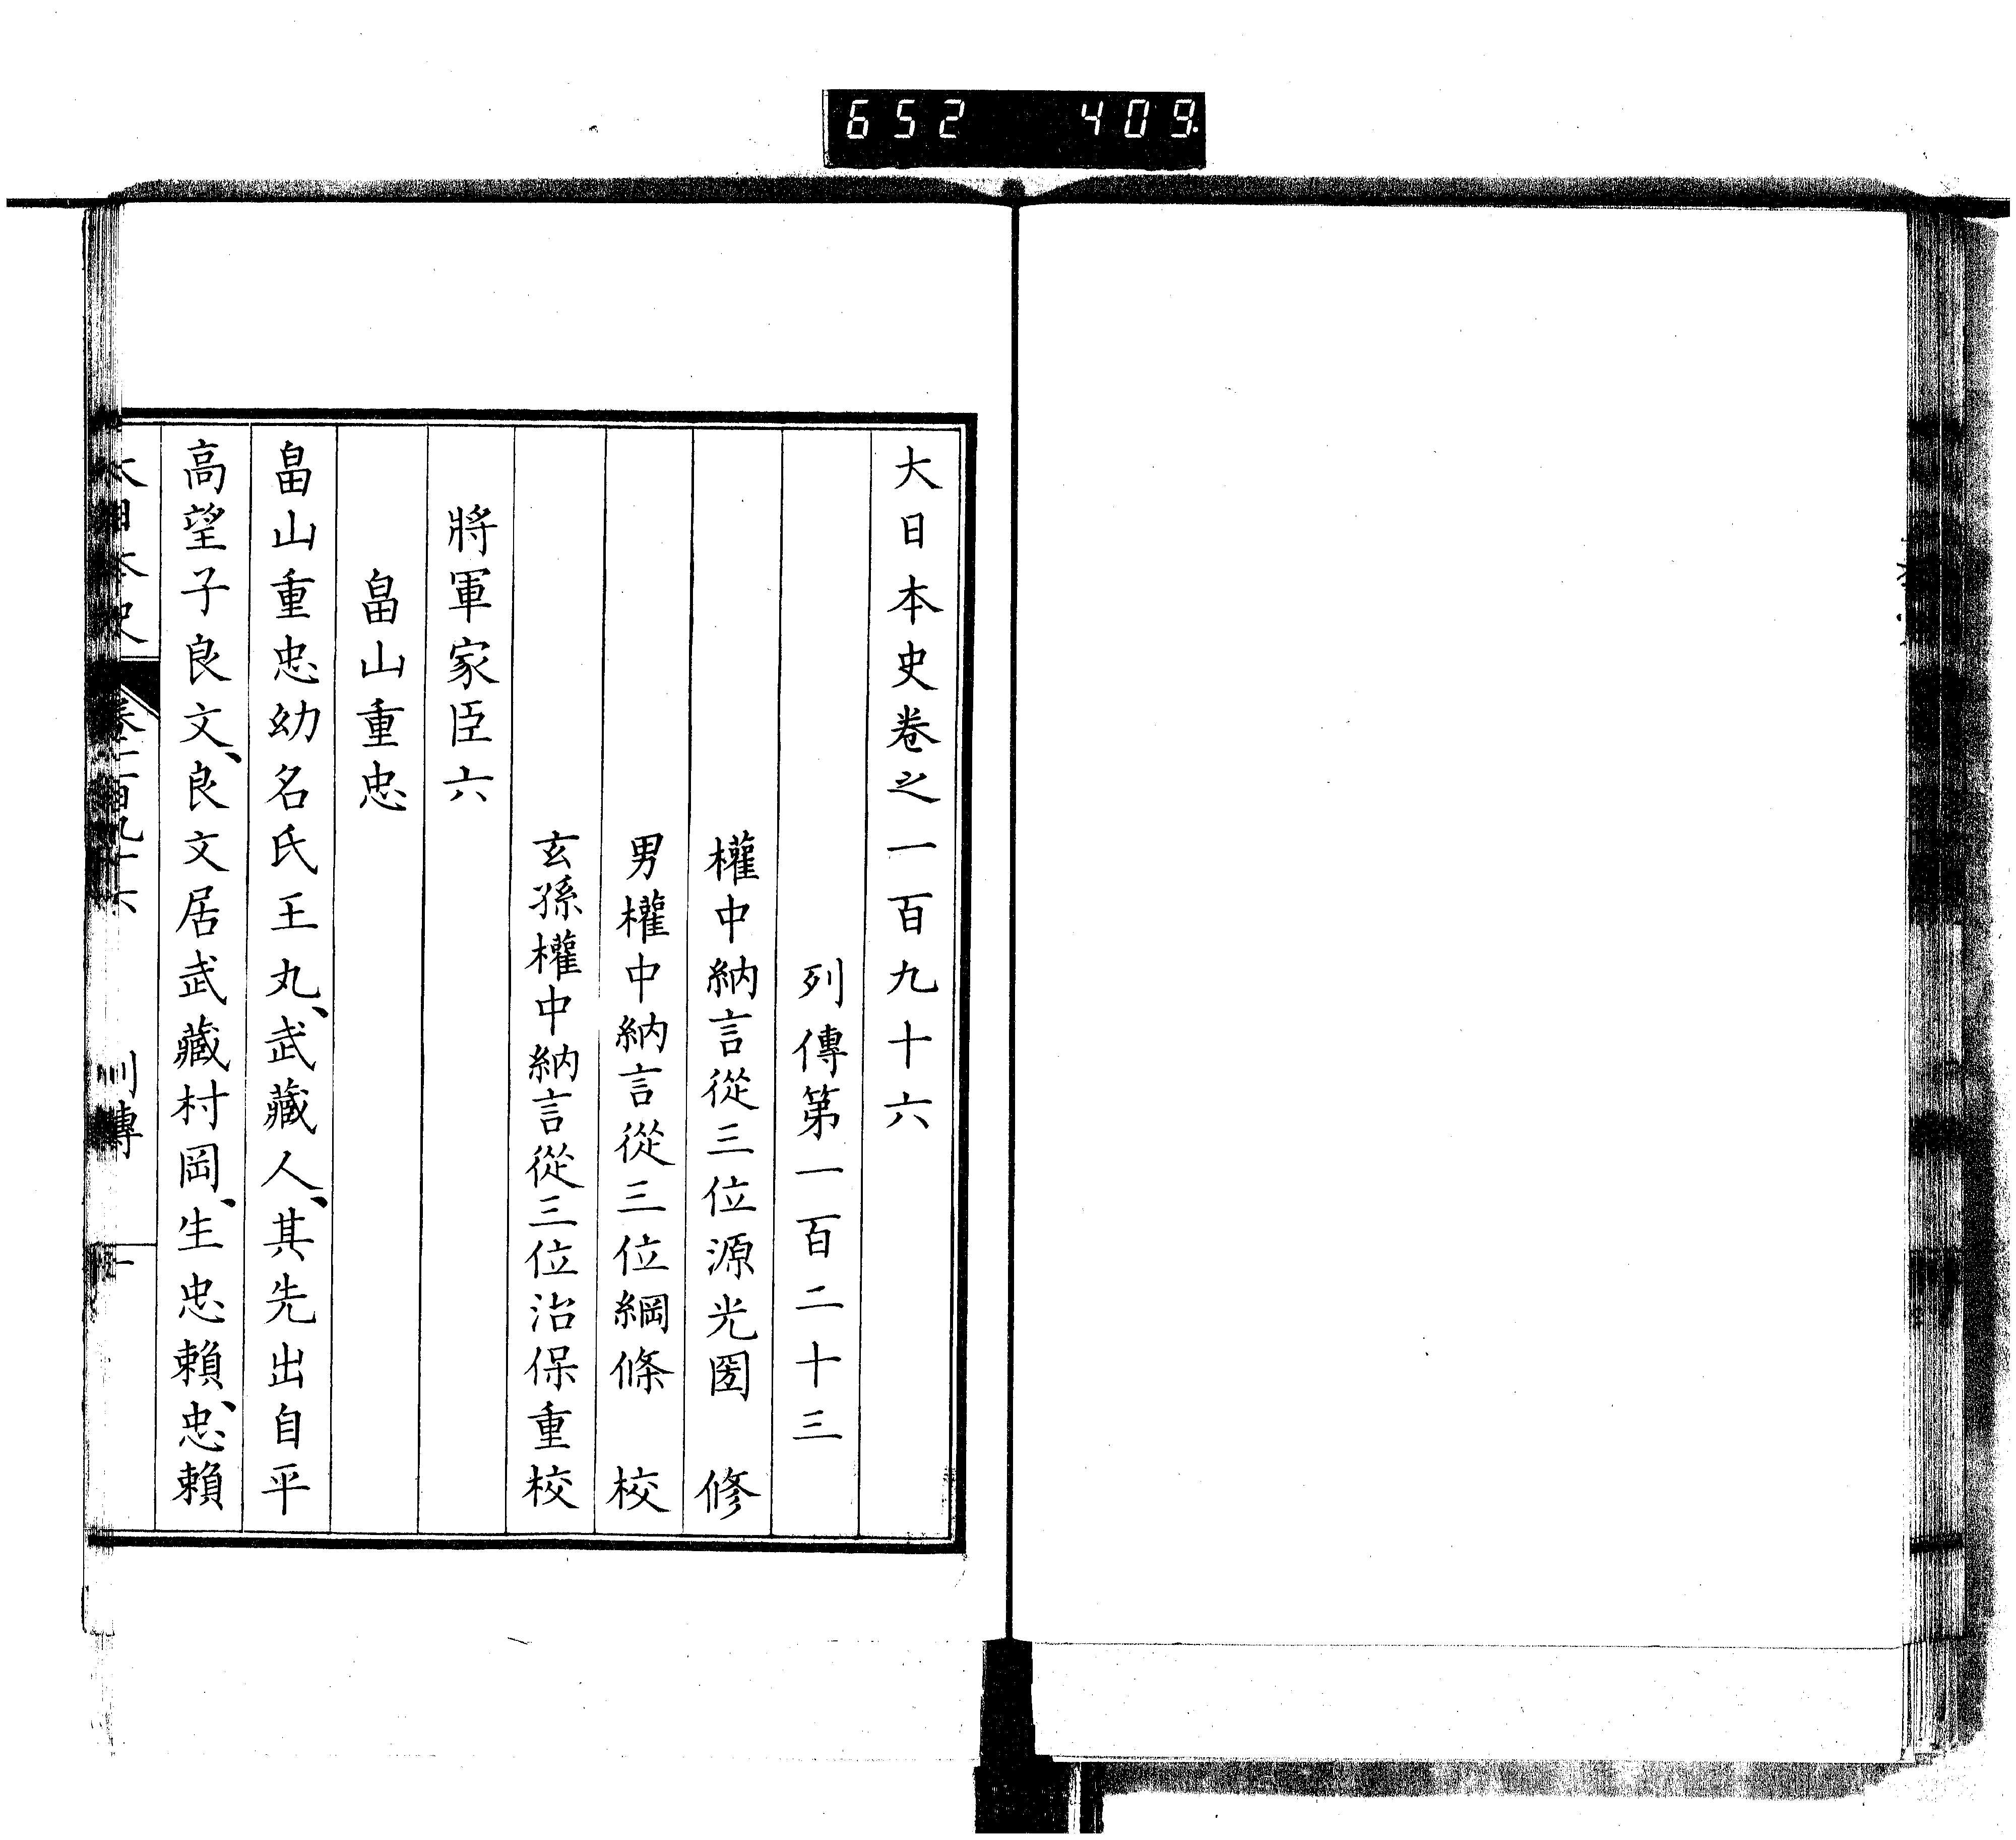 652 409.
大日本史卷之一百九十六
列傳第一百二十三
權中納言從三位源光圀 修
男權中納言從三位綱條 校
玄孫權中納言從三位治保重校
將軍家臣六
畠山重忠
畠山重忠幼名氏王丸、武藏人、其先出自平
高望子良文、良文居武藏村岡、生忠賴、忠賴
大日本史 卷一百九十六 列傳 一